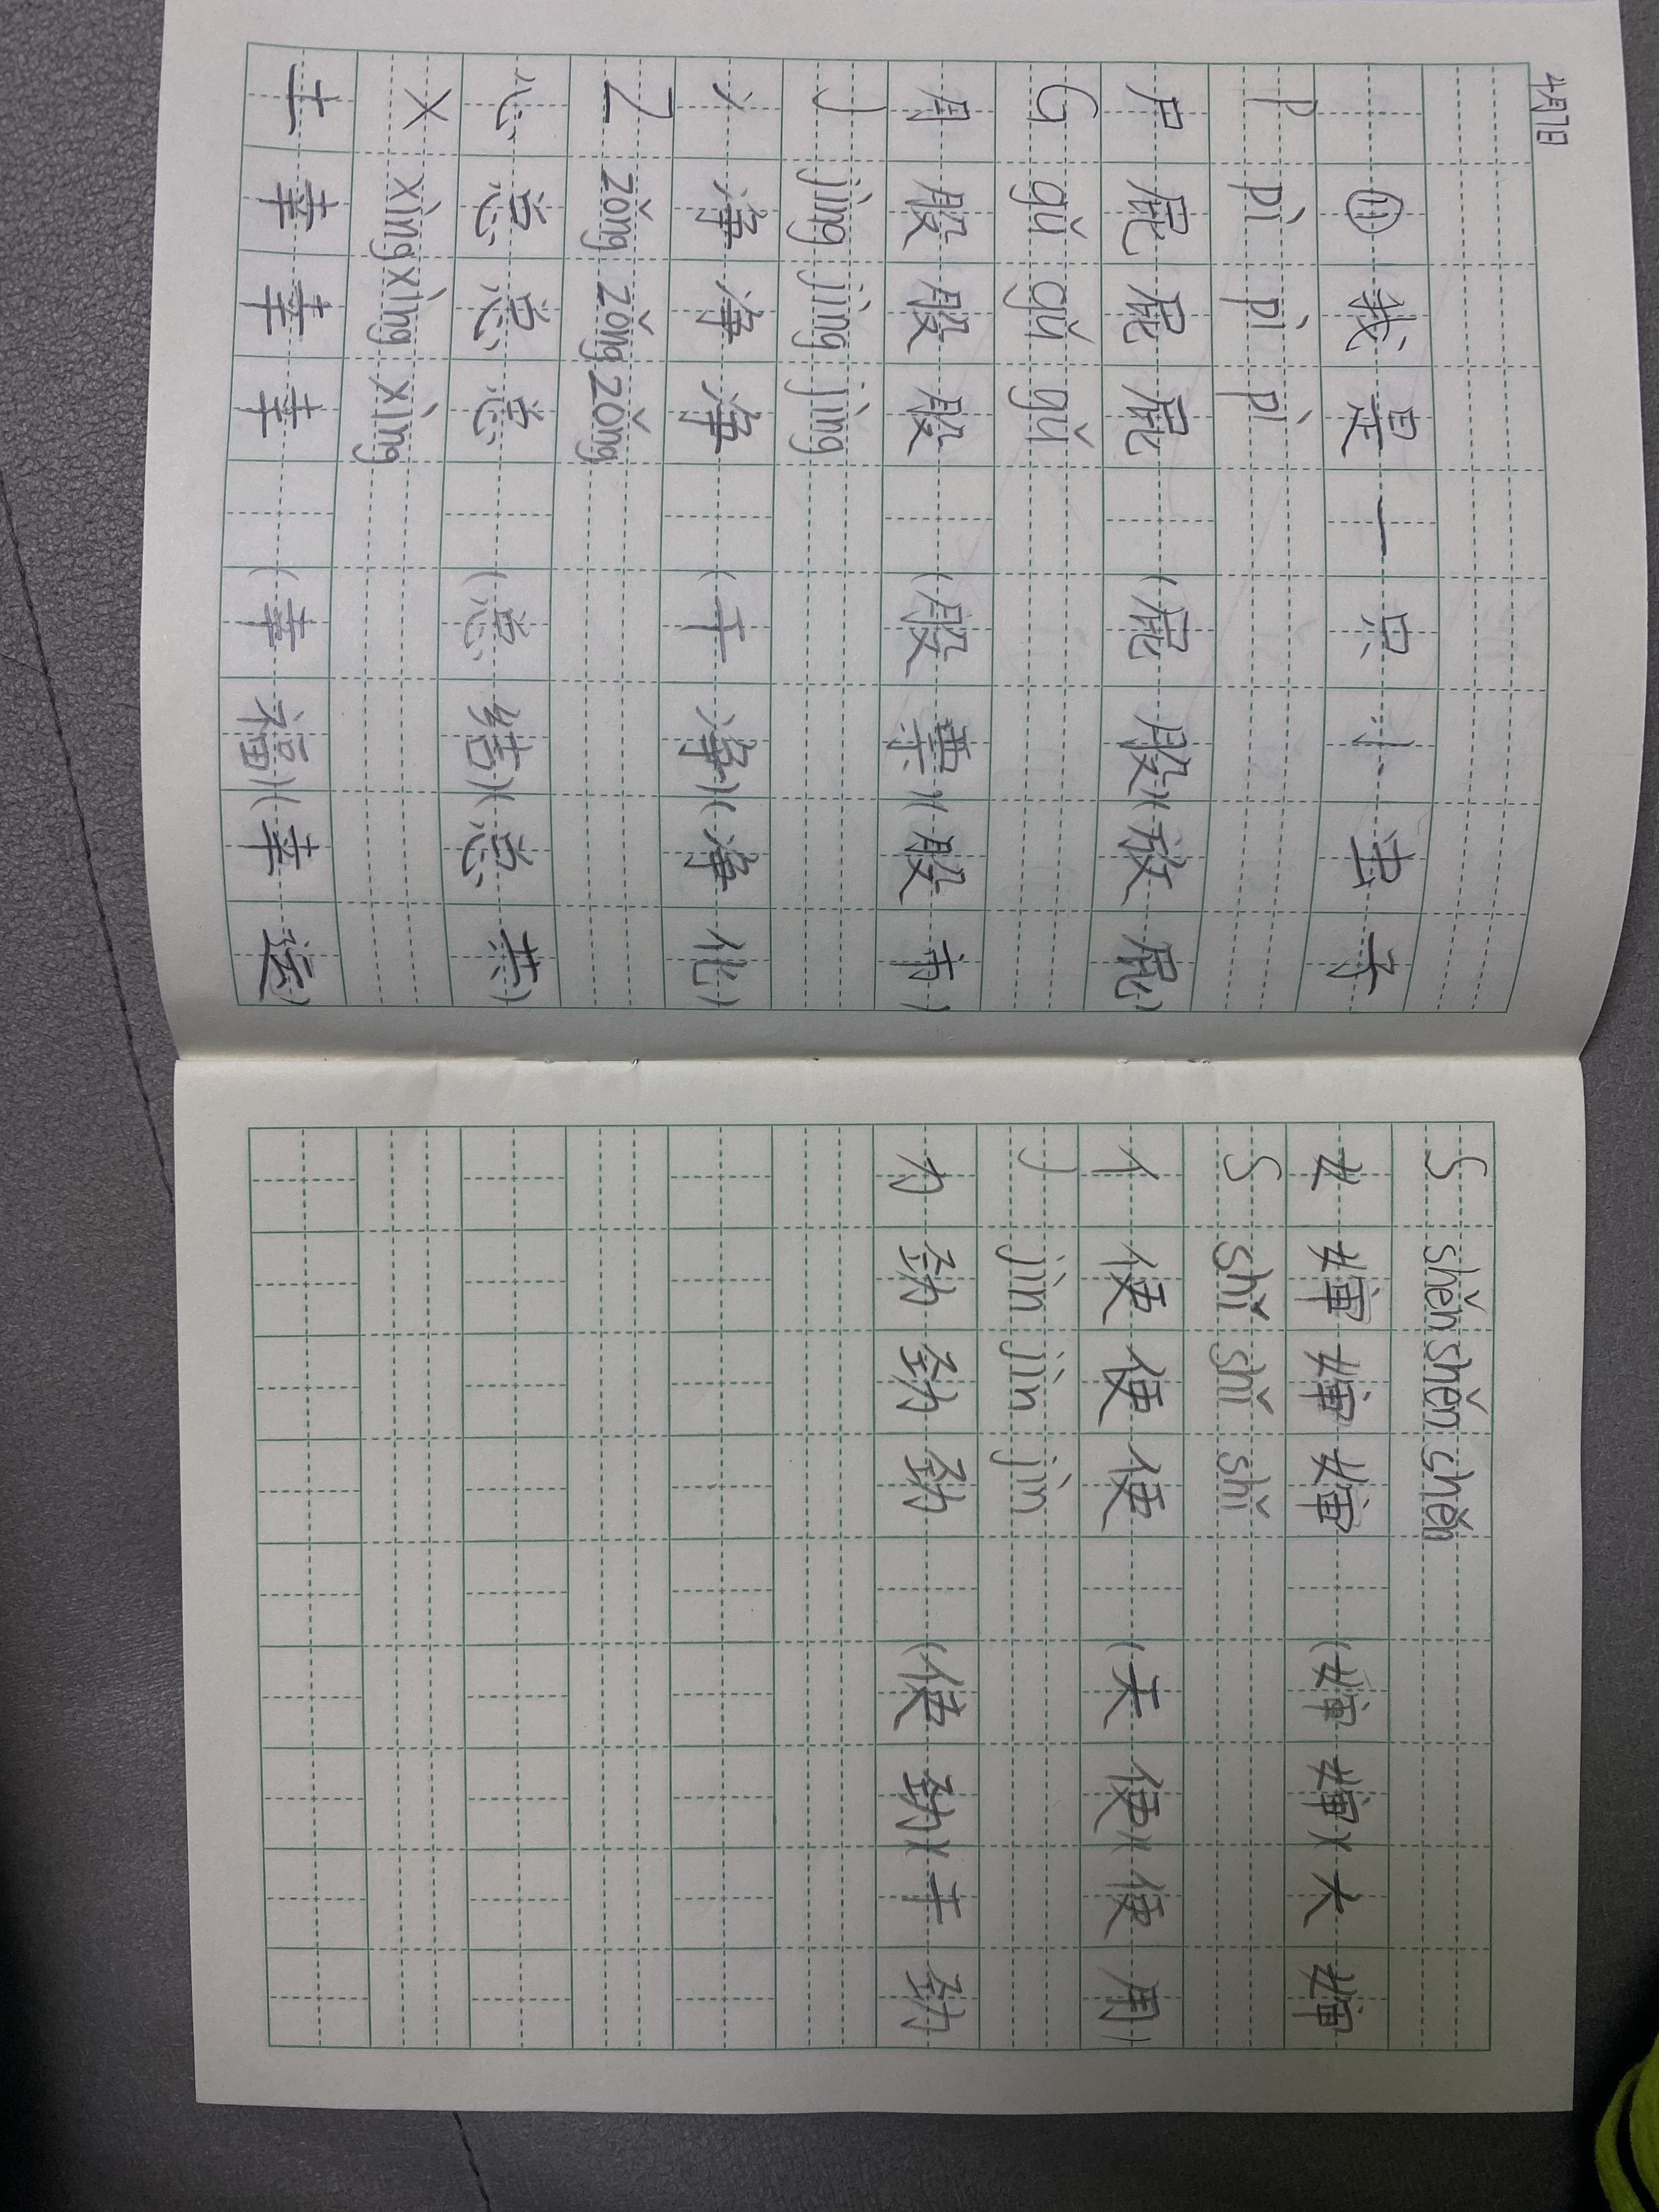 4月7日
⑪我是一只小虫子
P pì pì pì
尸 屁 屁 屁 (屁股)(放屁)
G gǔ gǔ gǔ
月 股 股 股 (股票)(股市)
J jìng jìng jìng
冫 净 净 净 (干净)(净化)
Z zǒng zǒng zǒng
心 总 总 总 (总结)(总共)
X xìng xìng xìng
土 幸 幸 幸 (幸福)(幸运)
S shěn shěn shěn
女 婶 婶 婶 (婶婶)(大婶
S shǐ shǐ shǐ
亻 使 使 使 (天使)(使用)
J jìn jìn jìn
力 劲 劲 劲 (使劲)(干劲